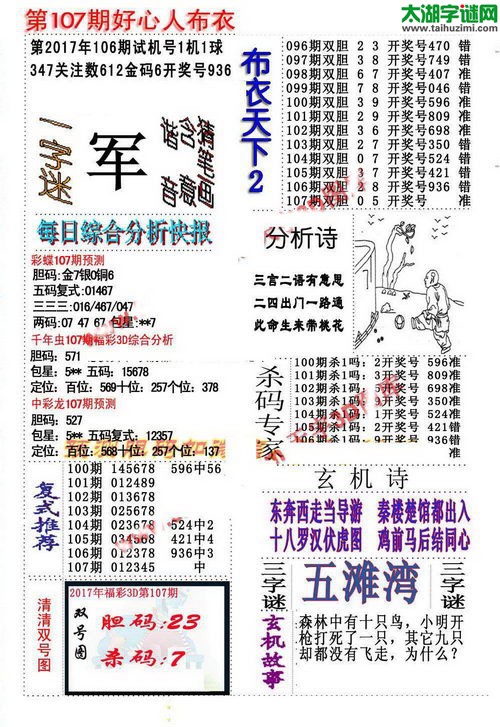 第107期好心人布衣
太湖字谜网
www.taihuzimi.com
第2017年106期试机号1机1球
347关注数612金码6开奖号936
一字迷
军
猜笔画
含寓
谐音
每日综合分析快报
彩蝶107期预测
胆码:金7银0铜6
五码复式:01467
三三三:016/467/047
两码:07 47 67 包星:**7
千年虫107期福彩3D综合分析
胆码:571
包星:5** 五码:15678
定位:百位:569十位:257个位:378
中彩龙107期预测
胆码:527
包星:5** 五码复式:12357
定位:百位:568十位:257个位:137
复式推荐
100期 145678 596中56
101期 012489
102期 013678
103期 025678
104期 023674 524中2
105期 034568 421中4
106期 012378 936中3
107期 012345 中
清清双号图
2017年福彩3D第107期
双号图
胆码:23
杀码:7
布衣天下2
096期双胆 2 3 开奖号470 错
097期双胆 3 8 开奖号749 错
098期双胆 4 6 开奖号407 准
099期双胆 1 0 开奖号390 准
100期双胆 4 7 开奖号596 错
101期双胆 2 9 开奖号809 准
102期双胆 3 6 开奖号698 准
103期双胆 2 7 开奖号450 错
104期双胆 0 7 开奖号524 错
105期双胆 3 7 开奖号421 错
106期双胆 4 8 开奖号936 错
107期双胆 0 5 开奖号 准
分析诗
三言二语有意思
二四出门一路通
此命生来带桃花
杀码专家
100期杀1码:2开奖号 596准
101期杀1码:3开奖号 809准
102期杀1码:5开奖号 698准
103期杀1码:9开奖号 450准
104期杀1码:1开奖号 524准
105期杀1码:2开奖号 421错
106期杀1码:9开奖号 936错
玄机诗
东奔西走当导游 秦楼楚馆都出入
十八罗汉伏虎图 鸡前马后结同心
三字谜
五滩湾
三字谜
玄机故事
森林中有十只鸟,小明开
枪打死了一只,其它九只
却都没有飞走,为什么?